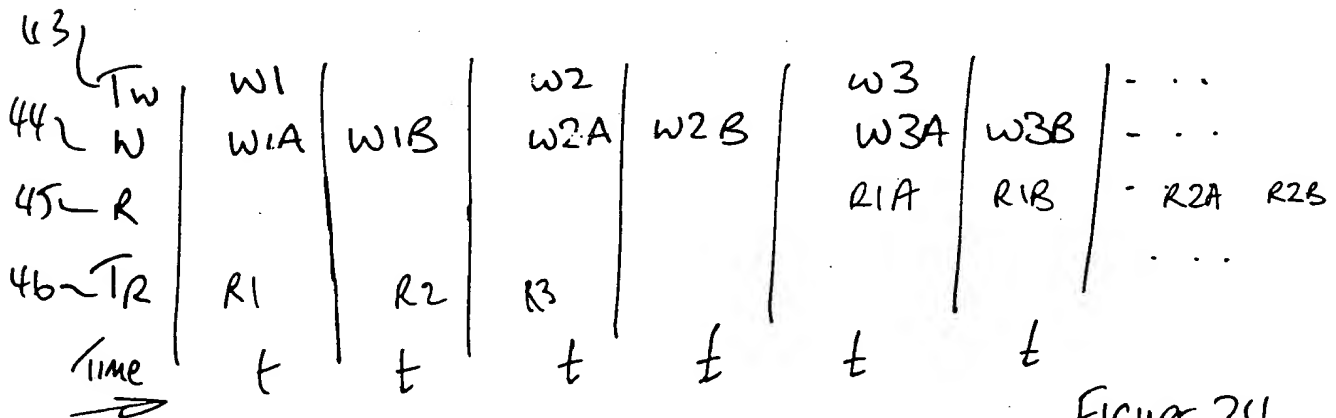 43
Tw W1 W2 W3 - . . .
44 W W1A W1B W2A W2B W3A W3B - . . .
45 R R1A R1B - R2A R2B
46 TR R1 R2 R3 . . .
Time t t t t t t
Figure 24